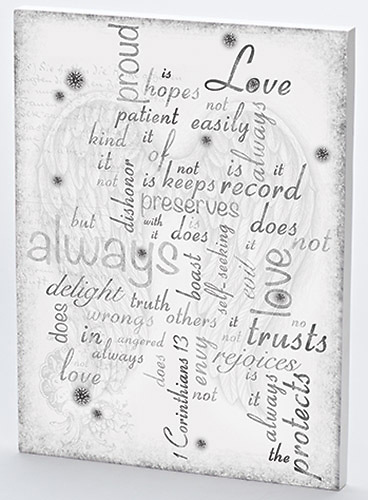 proud
is
Love
hopes
not
patient
easily
always
kind
it
of
it
not
is
it
not
is
keeps
record
dishonor
preserves
but
with
is
does
it
does
not
always
boast
self-seeking
it
evil
love
delight
truth
does
wrongs
others
it
no
in
angered
not
trusts
always
1 Corinthians 13
envy
rejoices
love
does
is
not
it
always
protects
the